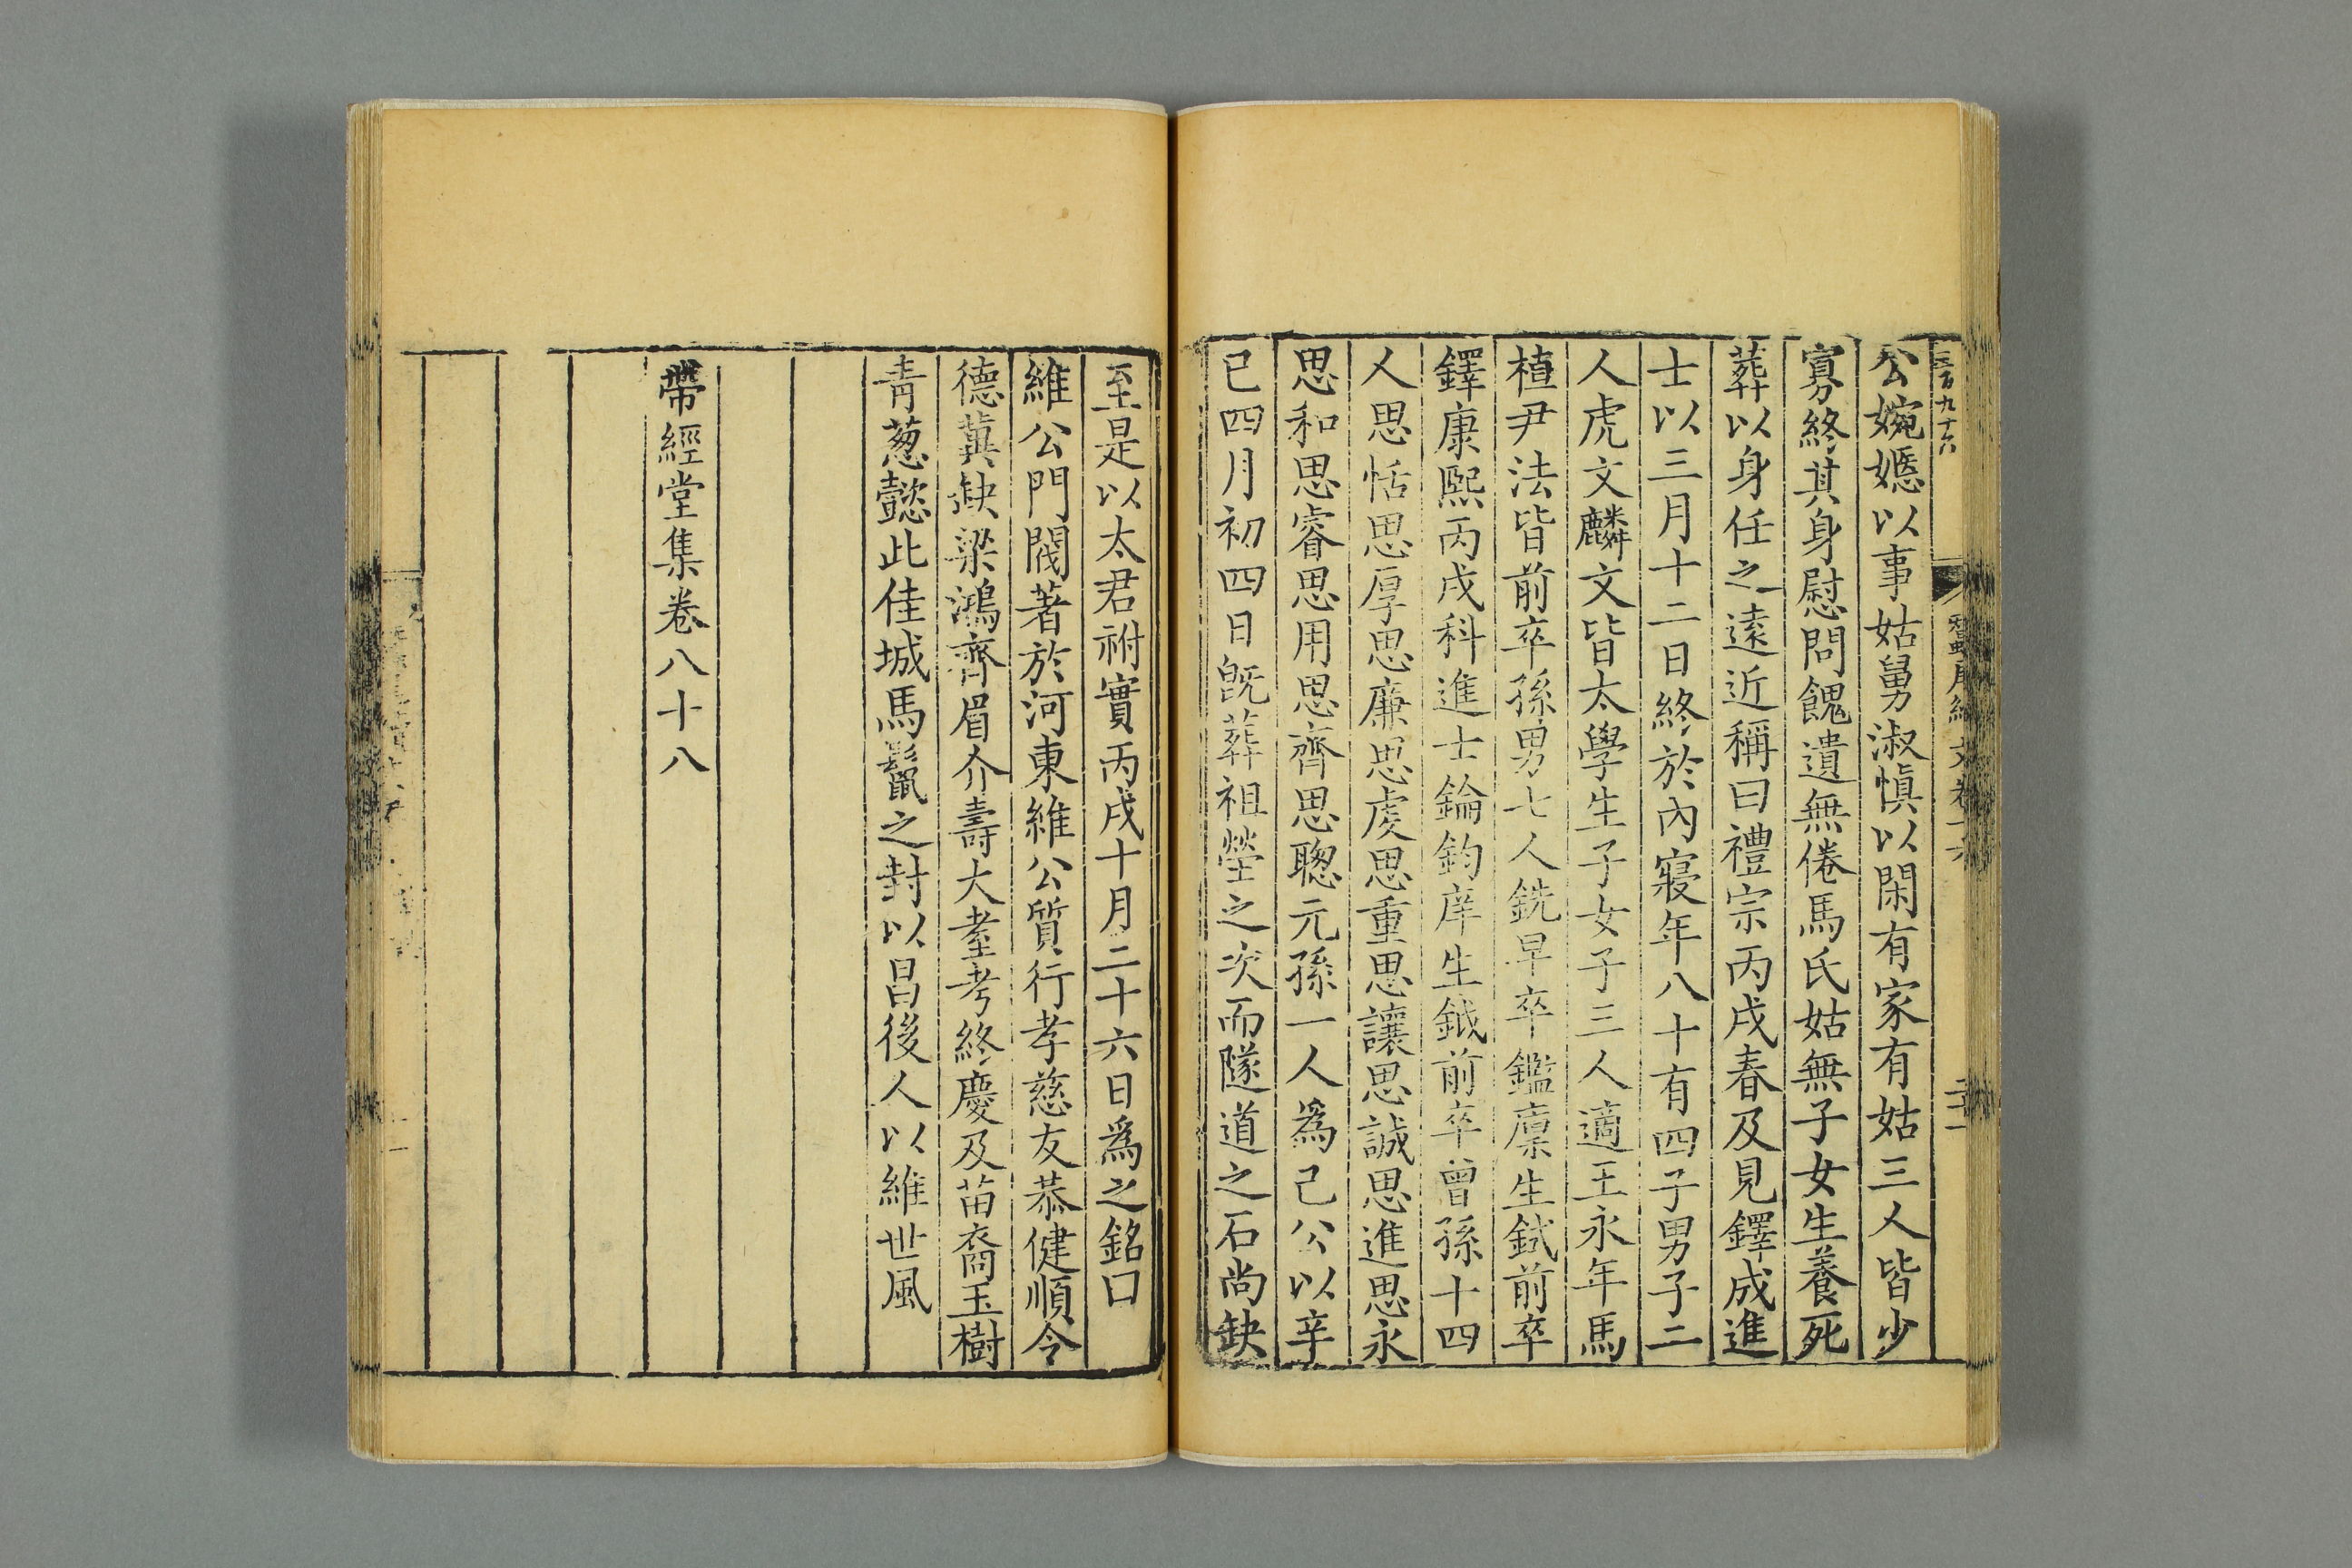 公婉嫕以事姑舅淑愼以閑有家有姑三人皆少
寡終其身慰問餽遺無倦馬氏姑無子女生養死
葬以身任之逺近稱曰禮宗丙戌春及見鐸成進
士以三月十二日終於內寢年八十有四子男子二
人虎文麟文皆太學生子女子三人適王永年馬
植尹法皆前卒孫男七人銑早卒鑑廩生鉽前卒
鐸康熙丙戌科進士錀鈞庠生鉞前卒曾孫十四
人思恬思厚思廉思虔思重思讓思誠思進思永
思和思睿思用思齊思聰元孫一人為己公以辛
巳四月初四日旣葬祖塋之次而隧道之石尚缺
至是以太君祔實丙戌十月二十六日爲之銘曰
維公門閥著於河東維公質行孝慈友恭健順令
德冀缺梁鴻齊眉介壽大耋考終慶及苗裔玉樹
靑葱懿此佳城馬鬣之封以昌後人以維世風
帶經堂集卷八十八